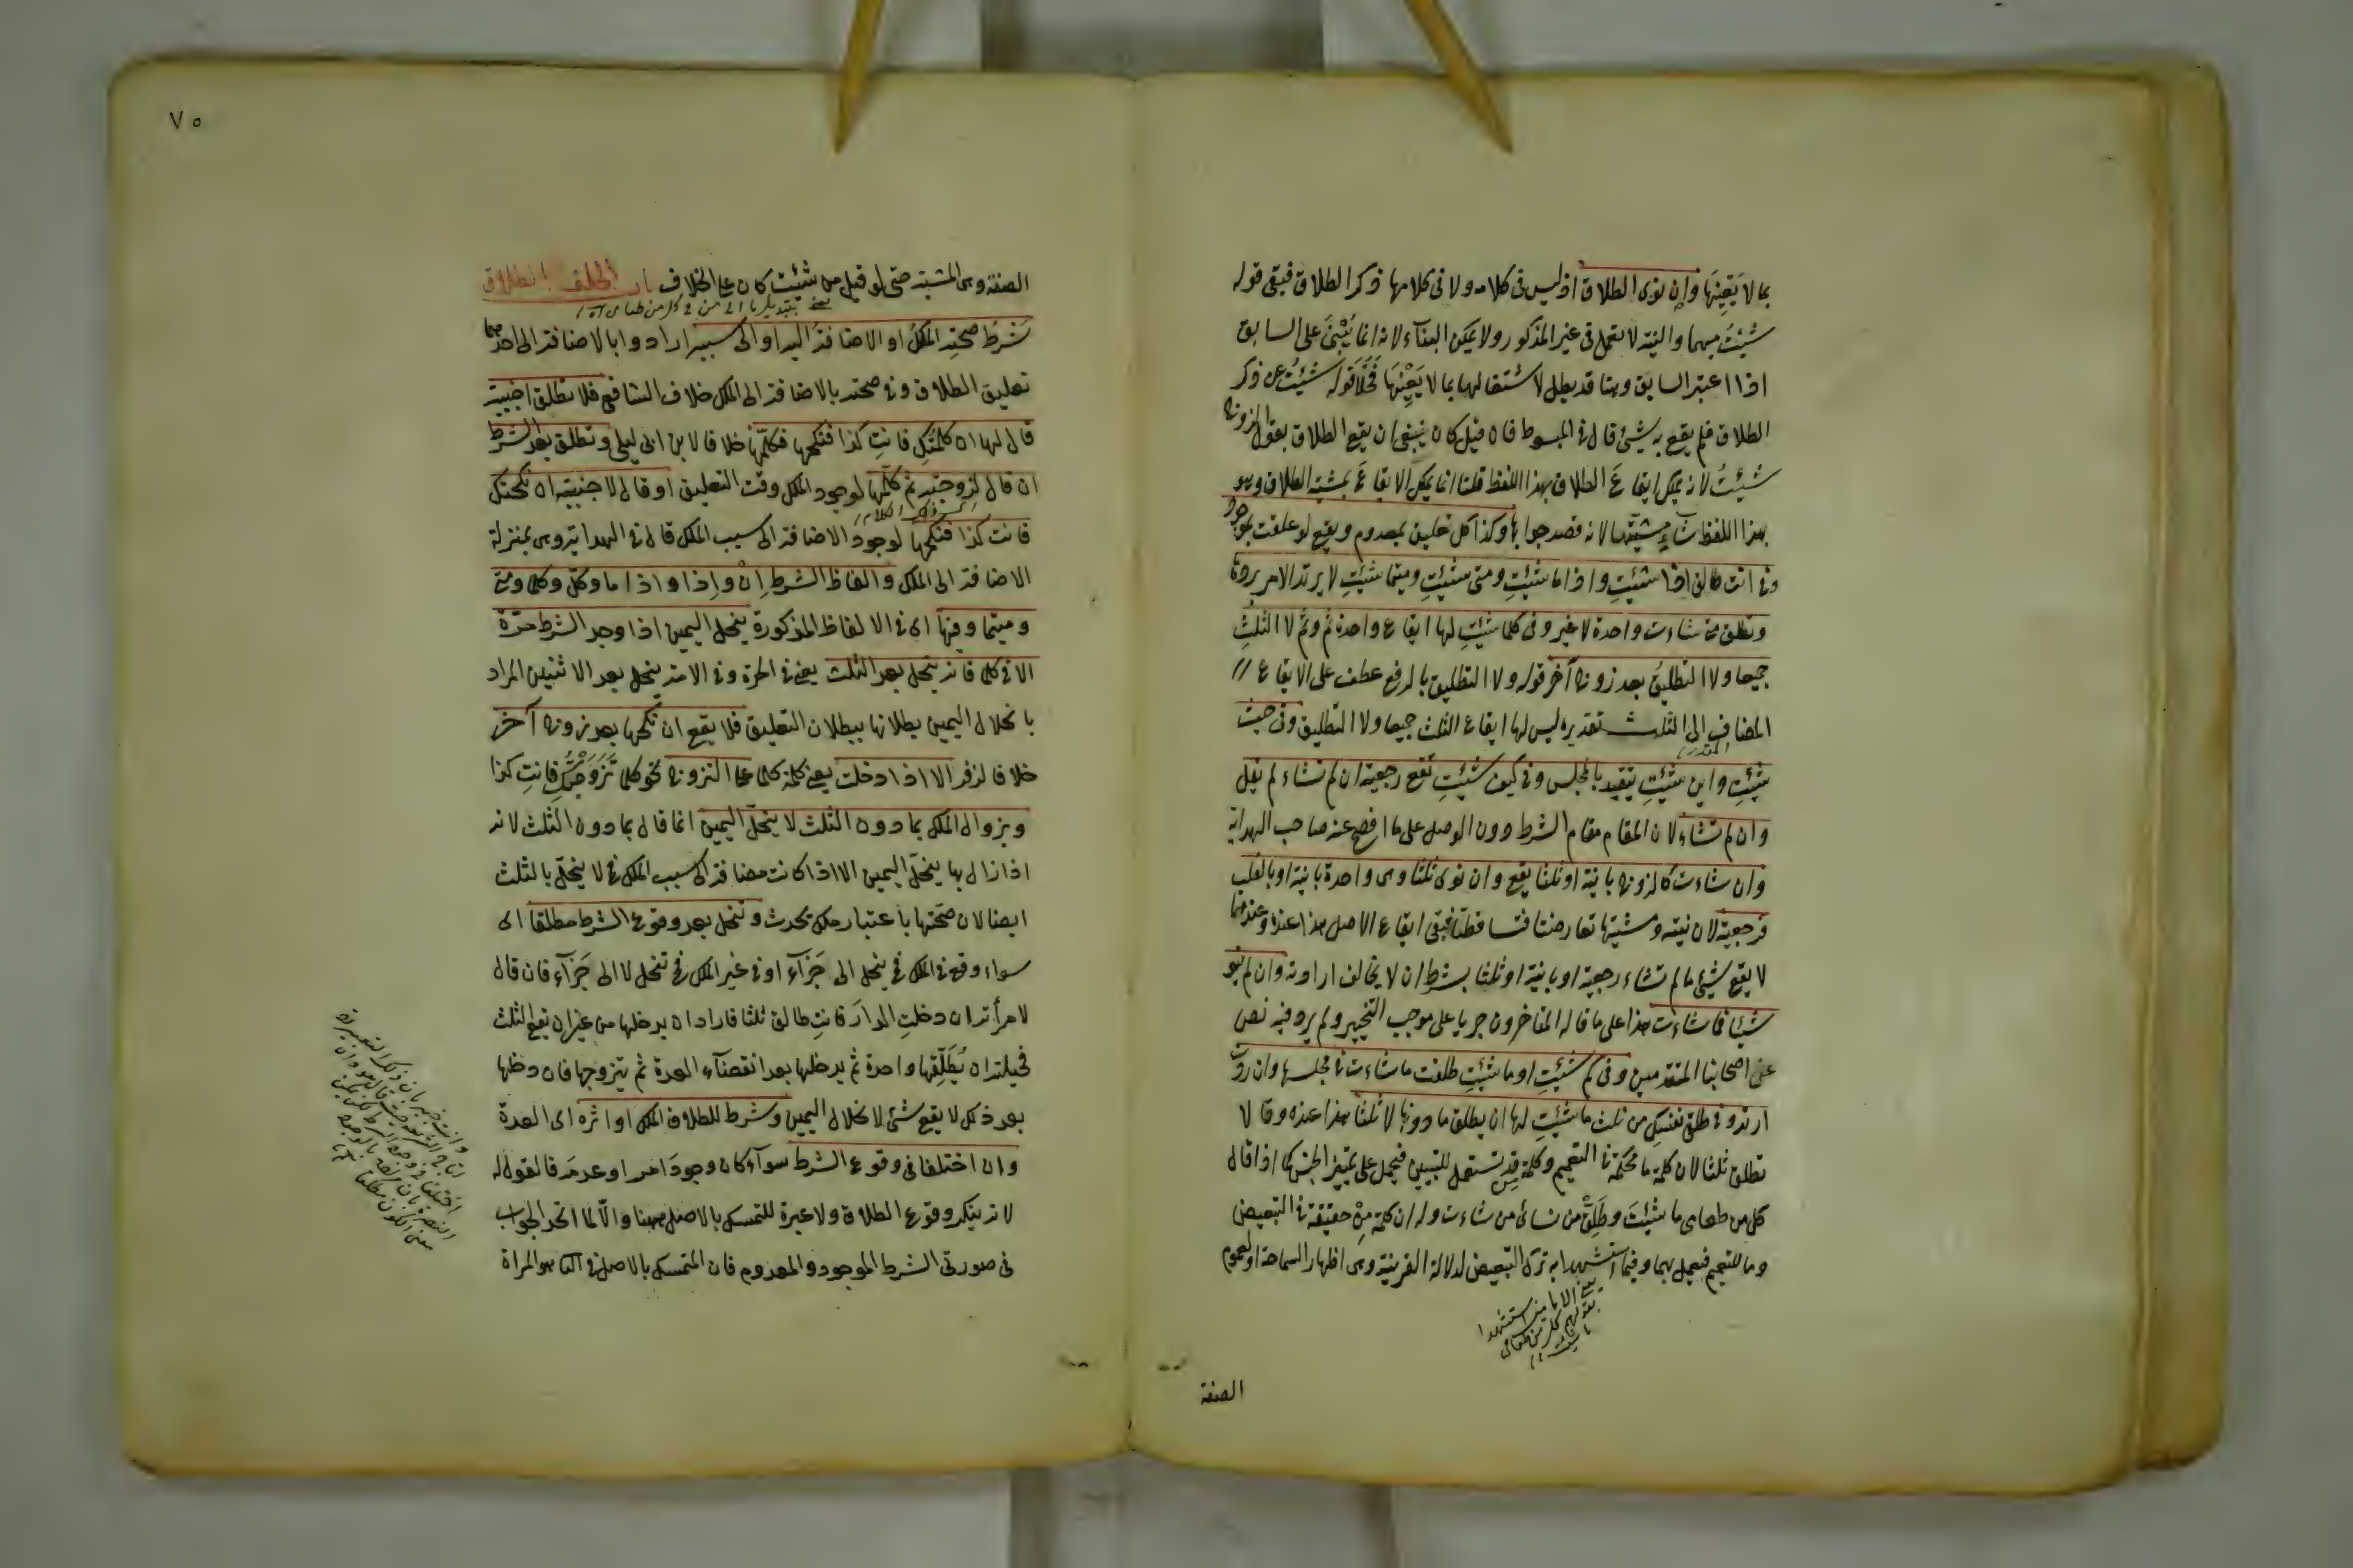 بما لا يَعنِيها وإن نوى الطلاق اذ ليس في كلامه ولا في كلامها ذكر الطلاق فبقي قوله
شئيتُ مبهما والنية لا تعمل في غير المذكور ولا يمكن البناء لانه انما يُبْنىَ على السابق
اذا اعتبر السابق وهنا قد بطل لاشتغالها بما لا يَعْنِيها فخلا قوله شئيتُ عن ذكر
الطلاق فلم يقع به شئ قال في المبسوط فان قيل كان ينبغي ان يقع الطلاق بقول الزوج
شئيتُ لانه يمكن ايقاع الطلاق بهذا اللفظ قلنا انما يمكن الايقاع بمشية الطلاق وهو
بهذا اللفظ شاءٍ مشيتها لانه قصد جوابها وكذا كل تعليق بمعدوم ويقع لو علقت بموجود
وفي انت طالق اذا شئيتِ واذا ما شئيتِ ومتى شئيتِ ومتيما شئيتِ لا يرتد الامر بردها
وتطلق متى شاءت واحدة لا غير وفي كلما شئيتِ لها ايقاع واحدة ثم وثم لا الثلثِ
جميعا ولا التطليقُ بعد زوج آخر قوله ولا التطليق بالرفع عطف على الايقاع
المضاف الى الثلث تقديره ليس لها ايقاع الثلث جميعا ولا التطليق وفي حيث
المقدر
شئيتِ واين شئيتِ يتقيد بالمجلس وفي كيف شئيتِ تقع رجعية ان لم تشاء لم يقل
وان لم تشاء لان المقام مقام الشرط دون الوصل على ما افصح عنه صاحب الهداية
وان شاءت كالزوج باينة او ثلثا يقع وان نوى ثلثا وهي واحدة باينة او بالقلب
فرجعية لان نيته ومشيتها تعارضتا فتساقطتا فبقي ايقاع الاصل هذا عنده وعندهما
لا يقع شئ ما لم تشاء رجعية او باينة او ثلثا بشرط ان لا يخالف ارادته وان لم ينو
شيئا فما شاءت هذا على ما قاله المتاخرون جريا على موجب التخيير ولم يرد فيه نص
عن اصحابنا المتقدمين وفي كم شئيتِ او ما شئيتِ طلقت ما شاءت في مجلسها وان ردّت
ارتد وفي طلق نفسكِ من ثلث ما شئيتِ لها ان يطلق ما دونها لا ثلثا هذا عنده وقالا
تطلق ثلثا لان كلمة ما محكمة في التعميم وكلمة مِن قد تستعمل للتبيين فيحمل على تمييز الجنس كما اذا قال
كل من طعامي ما شئيتَ وطَلِقْ من نسائي من شاءت وله ان كلمة مِنْ حقيقة في التبعيض
وما للتعميم فيعمل بهما وفيما استشهدا به ترك التبعيض لدلالة القرينة وهي اظهار السماحة او لعموم
يعنى الامامين استشهدا
بقولهم كل من طعامى
ما شئيت
الصفة
٧٥
الصفة وهى المشية حتى لو قيل من شئيت كان على الخلاف باب الحلف بالطلاق
شرط صحته الملك او الاضافة اليه او الى سببه اراد وا بالاضافة الى احدهما
تعليق الطلاق وفي صحته بالاضافة الى الملك خلاف الشافعي فلا تطلق اجنبية
قال لها ان كلمتكِ فانتِ كذا فنكحها فكلّمها خلافا لابن ابي ليلى وتطلق بعد الشرط
ان قال لزوجته ثم كلّمها لوجود الملك وقت التعليق او قال لاجنبية ان نكحتك
فانت كذا فنكحها لوجود الاضافة الى سبب الملك قال في الهداية وهى بمنزلة
الاضافة الى الملك والفاظ الشرط اِنْ واِذا واذا ما وكل وكلما ومتى
ومتيما وفيها اى في الالفاظ المذكورة ينحل اليمين اذا وجد الشرط مرّة
الا في كلما فانه ينحل بعد الثلث يعنى في الحرة وفي الامة ينحل بعد الاثنين المراد
بانحلال اليمين بطلانها ببطلان التعليق فلا يقع ان نكحها بعد زوج آخر
خلافا لزفر الا اذا دخلت يعنى كلمة كلما على التزوج نحو كلما تَزَوَّجْتُكِ فانتِ كذا
وبزوال الملك بما دون الثلث لا ينحلّ اليمين انما قال بما دون الثلث لانه
اذا زال بها ينحلّ اليمين الا اذا كانت مضافة الى سبب الملك فح لا ينحلّ بالثلث
ايضا لان صحّتها باعتبار ملك يحدث وتنحل بعد وقوع الشرط مطلقا اى
سواء وقع في الملك فح ينحل الى جَزَآء او في غير الملك فح تنحل لا الى جَزَآء فان قال
لامرأته ان دخلتِ الدارَ فانتِ طالق ثلثا فاراد ان يدخلها من غير ان يقع الثلث
فحيلته ان يُطَلِّقها واحدة ثم يدخلها بعد انقضاء العدة ثم يتزوجها فان دخلها
بعد ذلك لا يقع شئ لانحلال اليمين وشرط للطلاق الملك او اثره اى العدة
وان اختلفا في وقوع الشرط سوآء كان وجودَ امر او عدمَه فالقول له
لانه ينكر وقوع الطلاق ولا عبرة للتمسك بالاصل ههنا والّا لما اتحد الجواب
في صورتي الشرط الموجود والمعدوم فان المتمسك بالاصل في الثانى هو المراة